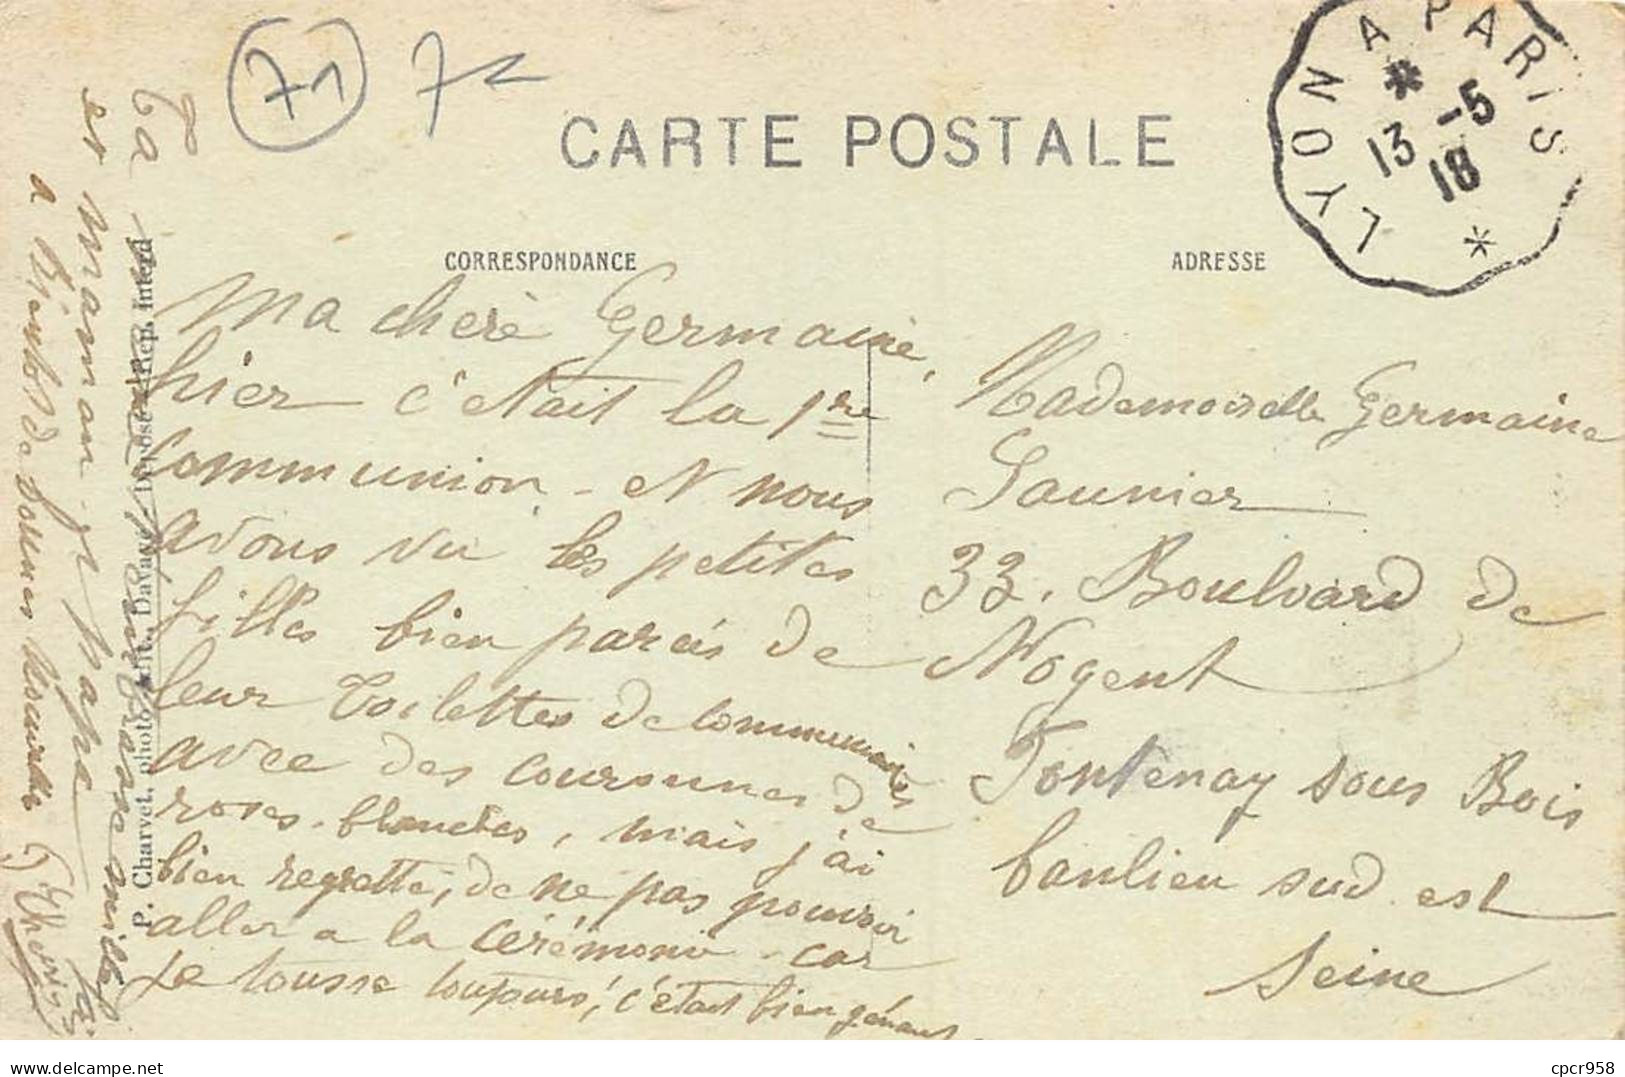 71 71
CARTE POSTALE
LYON A PARIS
13 -5
18
CORRESPONDANCE
ADRESSE
Ma chère Germaine,
hier c'etait la 1re
Communion - et nous
avons vu les petites
filles bien parées de
leur toilettes de communion
avec des couronnes de
roses blanches, mais j'ai
bien regretté, de ne pas pouvoir
aller a la cérémonie - car
je tousse toujours, c'était bien gênant
Mademoiselle Germaine
Saunier
33. Boulvard de
Nogent
Fontenay sous Bois
banlieu sud est
Seine
P. Charvet, photo, édit., Davayé - Déposé - Rep. Interd
Ta
embrasse ainsi
et maman et papa
a Bientot de bonnes nouvelles
cpcr958
www.delcampe.net